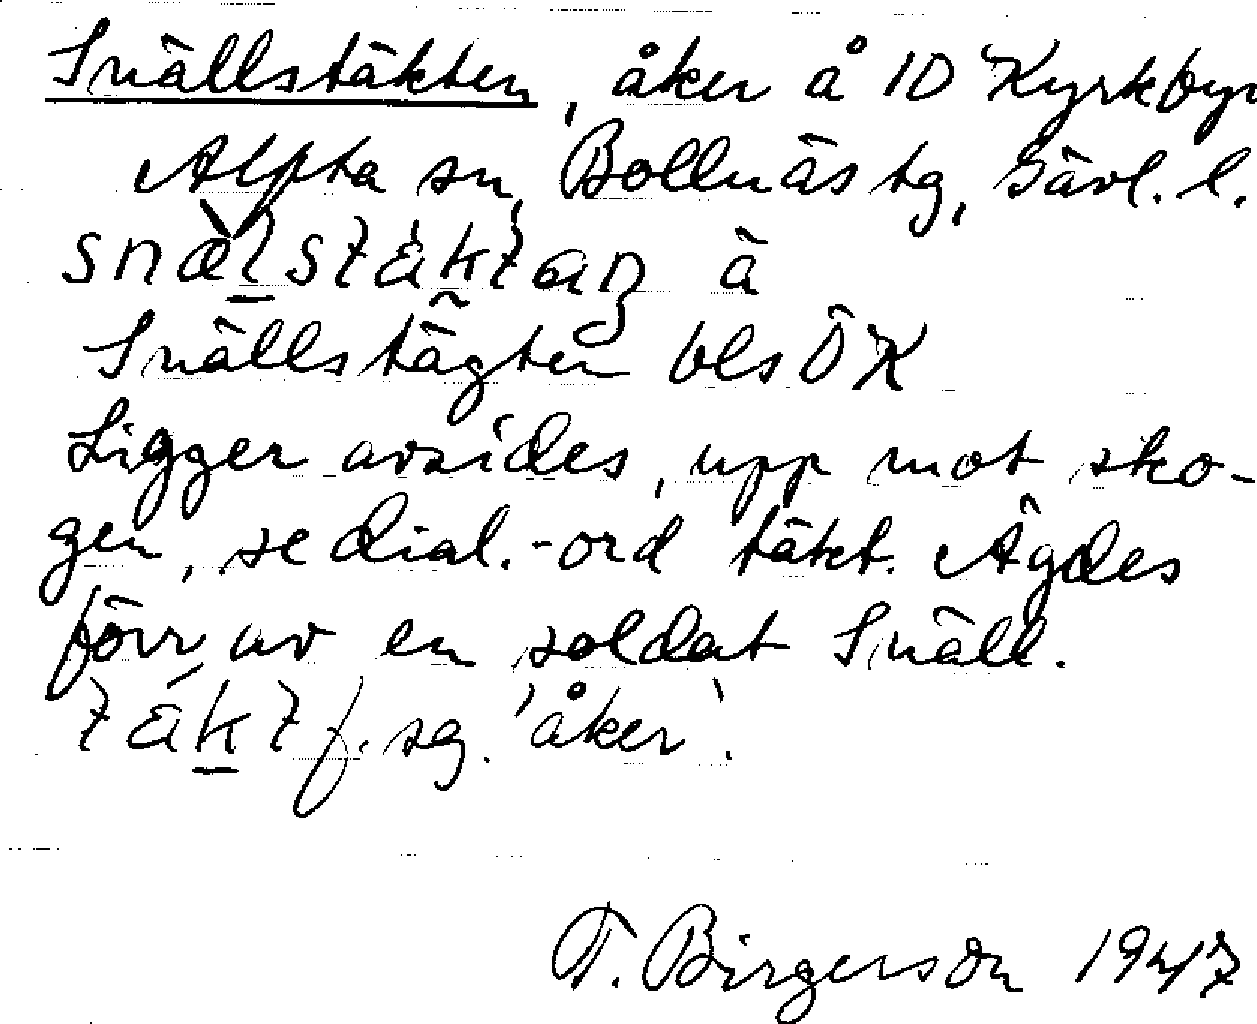 Snällstäkten, åker å 1D Kyrkbyn
Alfta sn, Bollnäs tg, Gävl. l.
snæ̀lstäktan ä
Snällstägten bls ÖK
Ligger avsides, upp mot sko-
gen, se dial.-ord täkt. Ägdes
förr av en soldat Snäll.
täkt f. sg. 'åker'.
T. Birgerson 1947